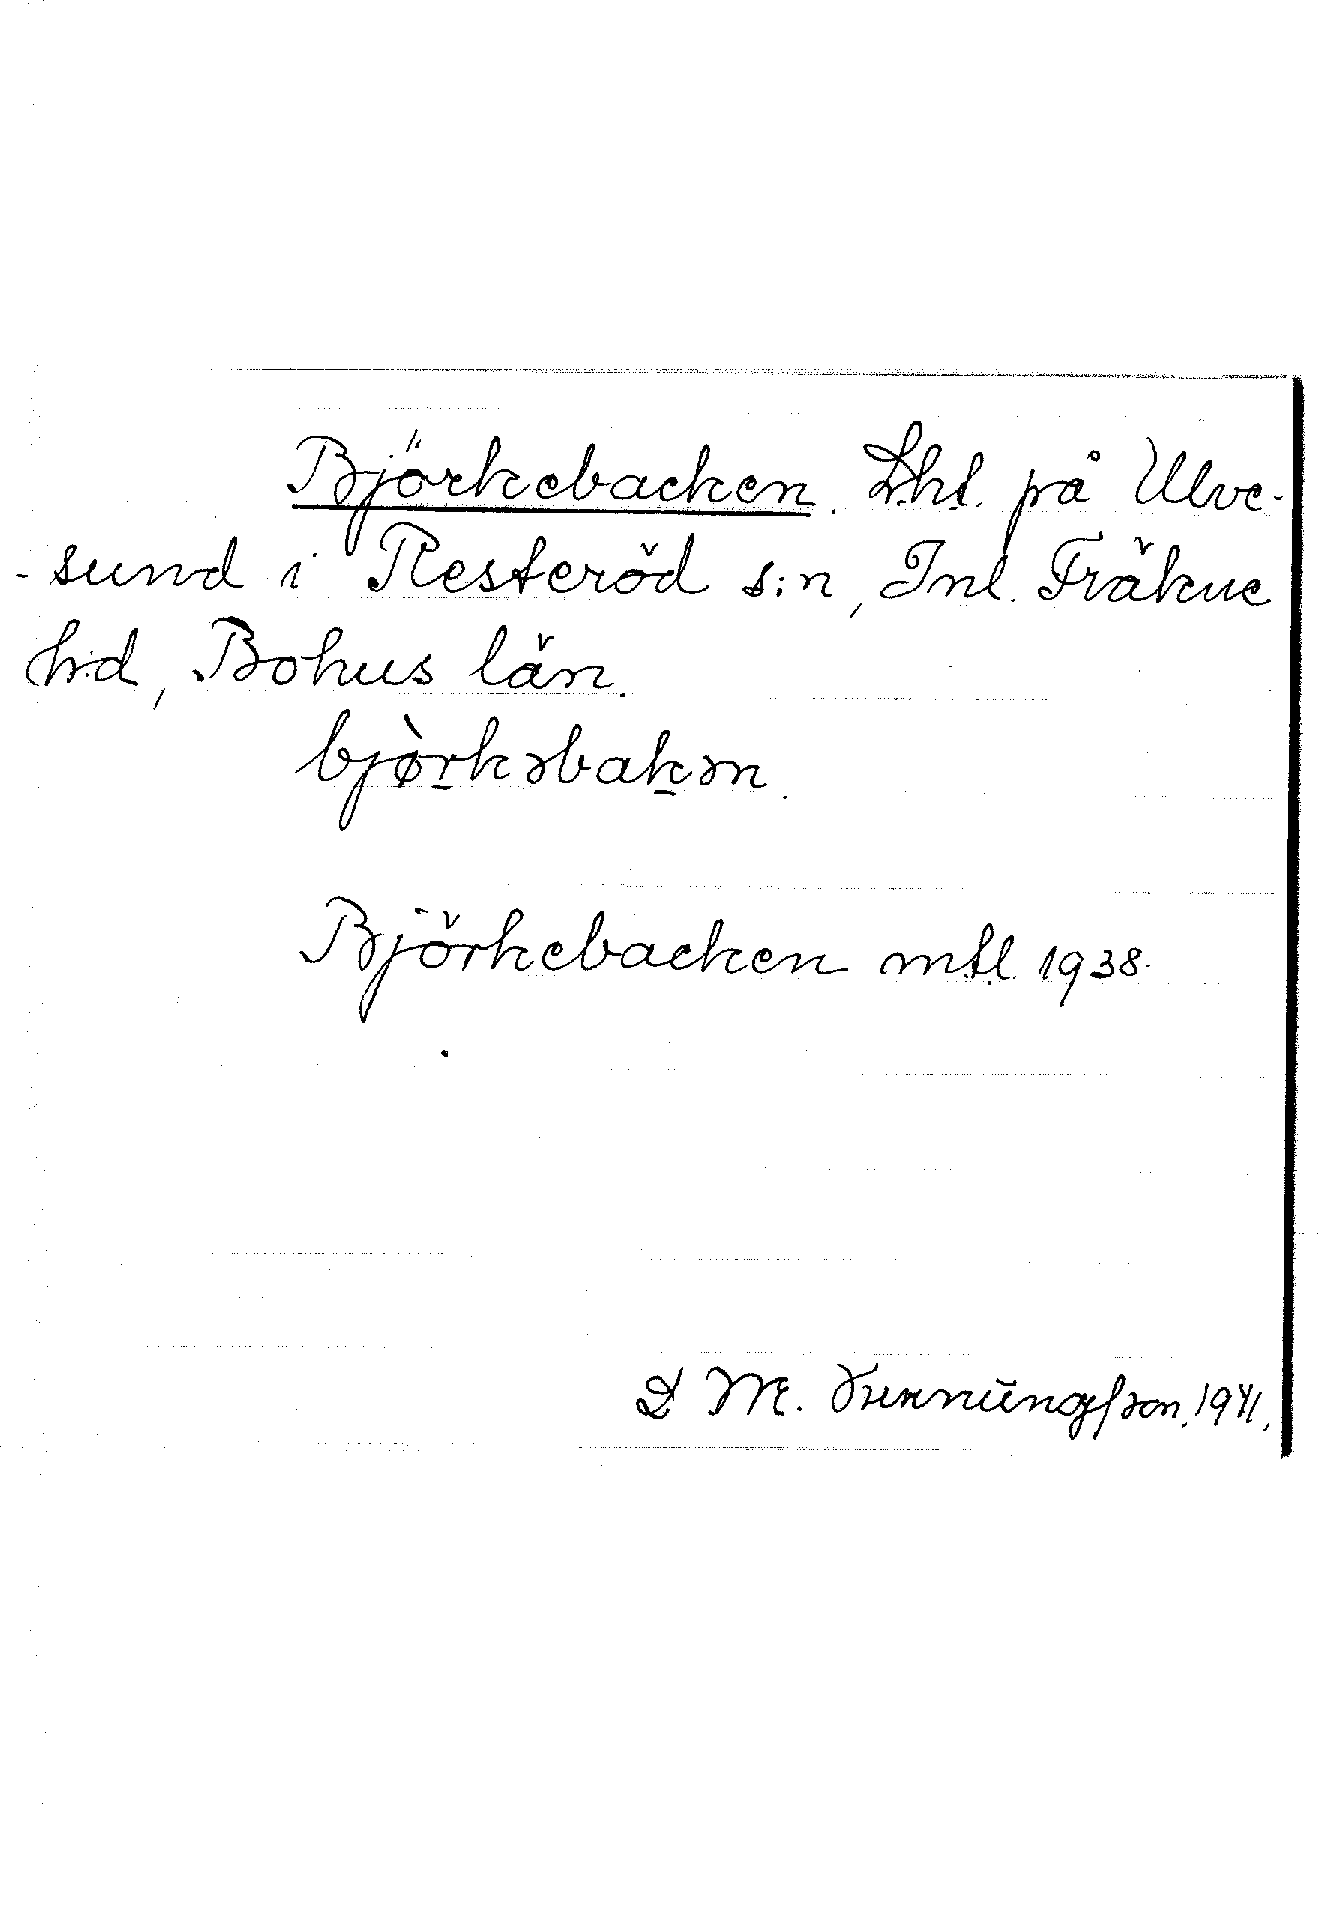 Björkebacken. Lht. på Ulve-
-sund i Resteröd s:n, Inl. Fräkne
hd, Bohus län.
bjø̀rkəbakən.
Björkebacken mtl 1938.
D M. 1941.